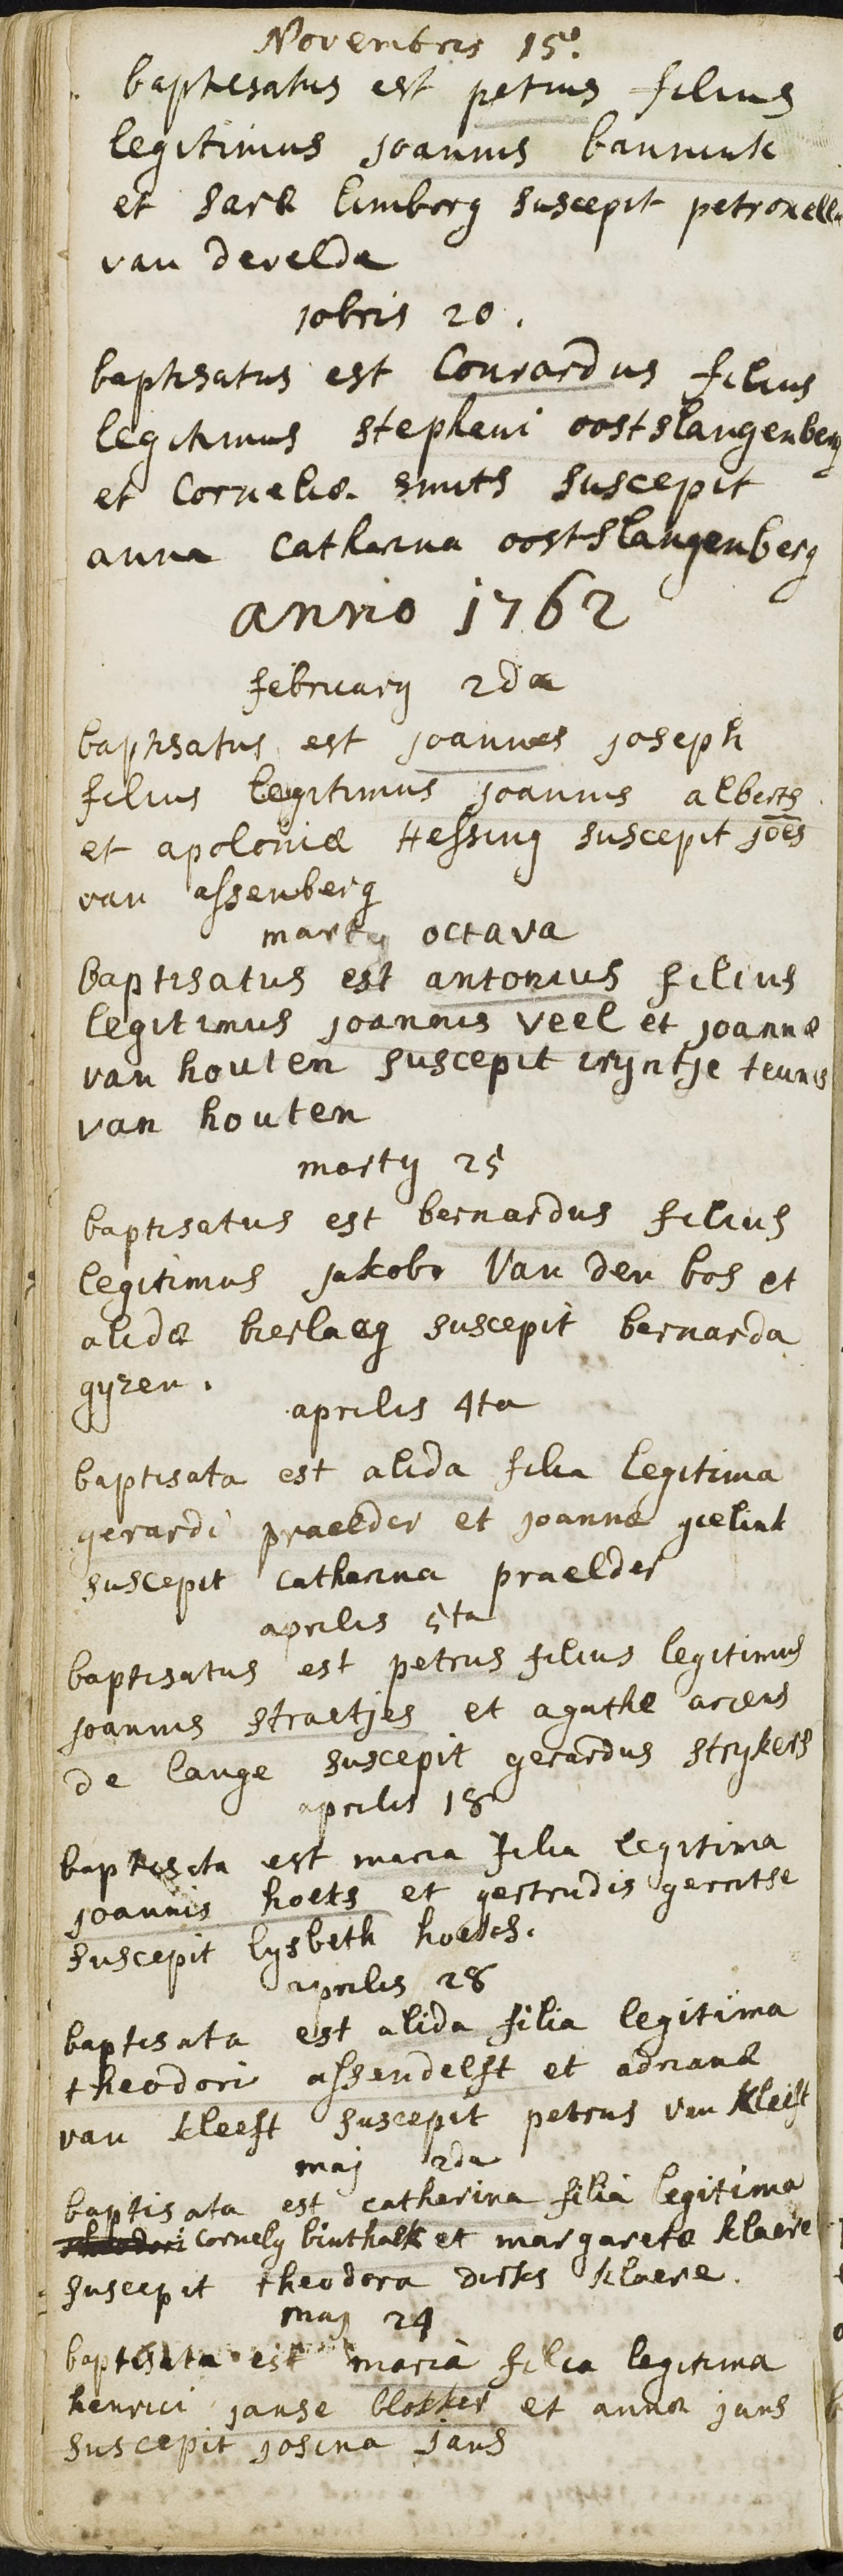 Novembris 15°.
baptisatus est petrus filius
legitimus joannis bannink
et saræ limborg suscepit petronella
van develde
10bris 20.
baptisatus est Conrardus filius
legitimus stephani oostslangenberg
et Corneliæ smits suscepit
anna Catharina oostslangenberg
anno 1762
february 2da
baptisatus est joannes joseph
filius legitimus joannis alberts
et apoloniæ Hessing suscepit joēs
van assenberg
marty octava
baptisatus est antonius filius
legitimus joannis veel et joannæ
van houten suscepit tryntje teunis
van houten
marty 25
baptisatus est bernardus filius
legitimus jakobi Van den bos et
alidæ bierlaag suscepit bernarda
gyzen.
aprilis 4ta
baptisata est alida filia legitima
gerardi praelder et joannæ gielink
suscepit catharina praelder
aprilis 5ta
baptisatus est petrus filius legitimus
joannis straetjes et agathæ ariens
de lange suscepit gerardus strykers
aprilis 18
baptisata est maria filia legitima
joannis hoets et gertrudis gerritse
suscepit lysbeth hoets.
aprilis 28
baptisata est alida filia legitima
theodori assendelft et adrianæ
van kleeft suscepit petrus van kleift
maj 2da
baptisata est catharina filia legitima
theodori Cornely binthalk et margaretæ klaere
suscepit theodora dirks klaere.
maj 24
baptisata est maria filia legitima
henrici janse blokker et annæ jans
suscepit josina jans